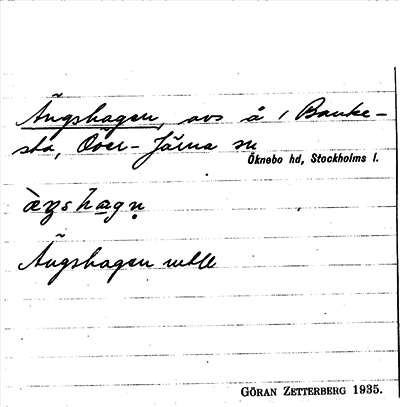 Ängshagen, avs å / Banke-
sta, Över-Järna sn
Öknebo hd, Stockholms l.
Ängshagen
GÖRAN ZETTERBERG 1935.